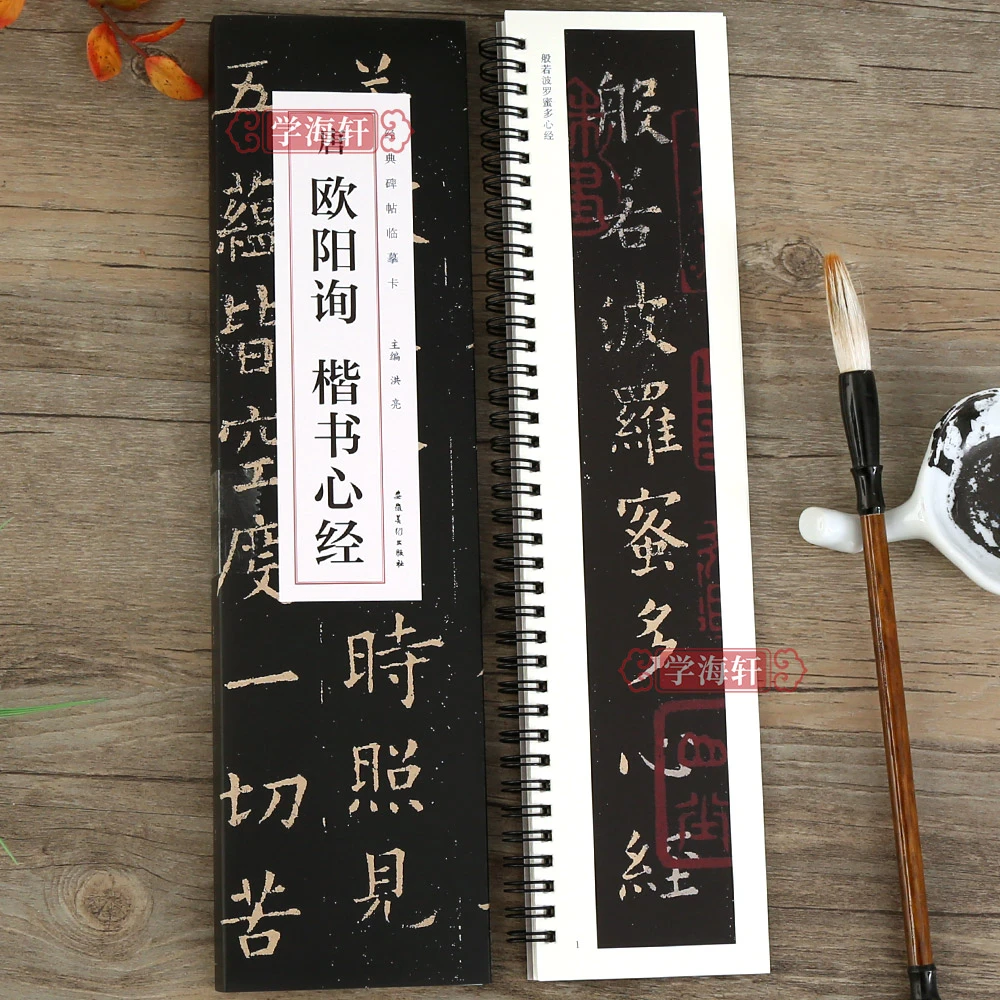 学海轩
唐 欧阳询 楷书心经
典碑帖临摹卡
主编 洪亮
安徽美术出版社
時照見
五蘊皆空度一切苦
般若波罗蜜多心经
般若波羅蜜多心経
1
学海轩